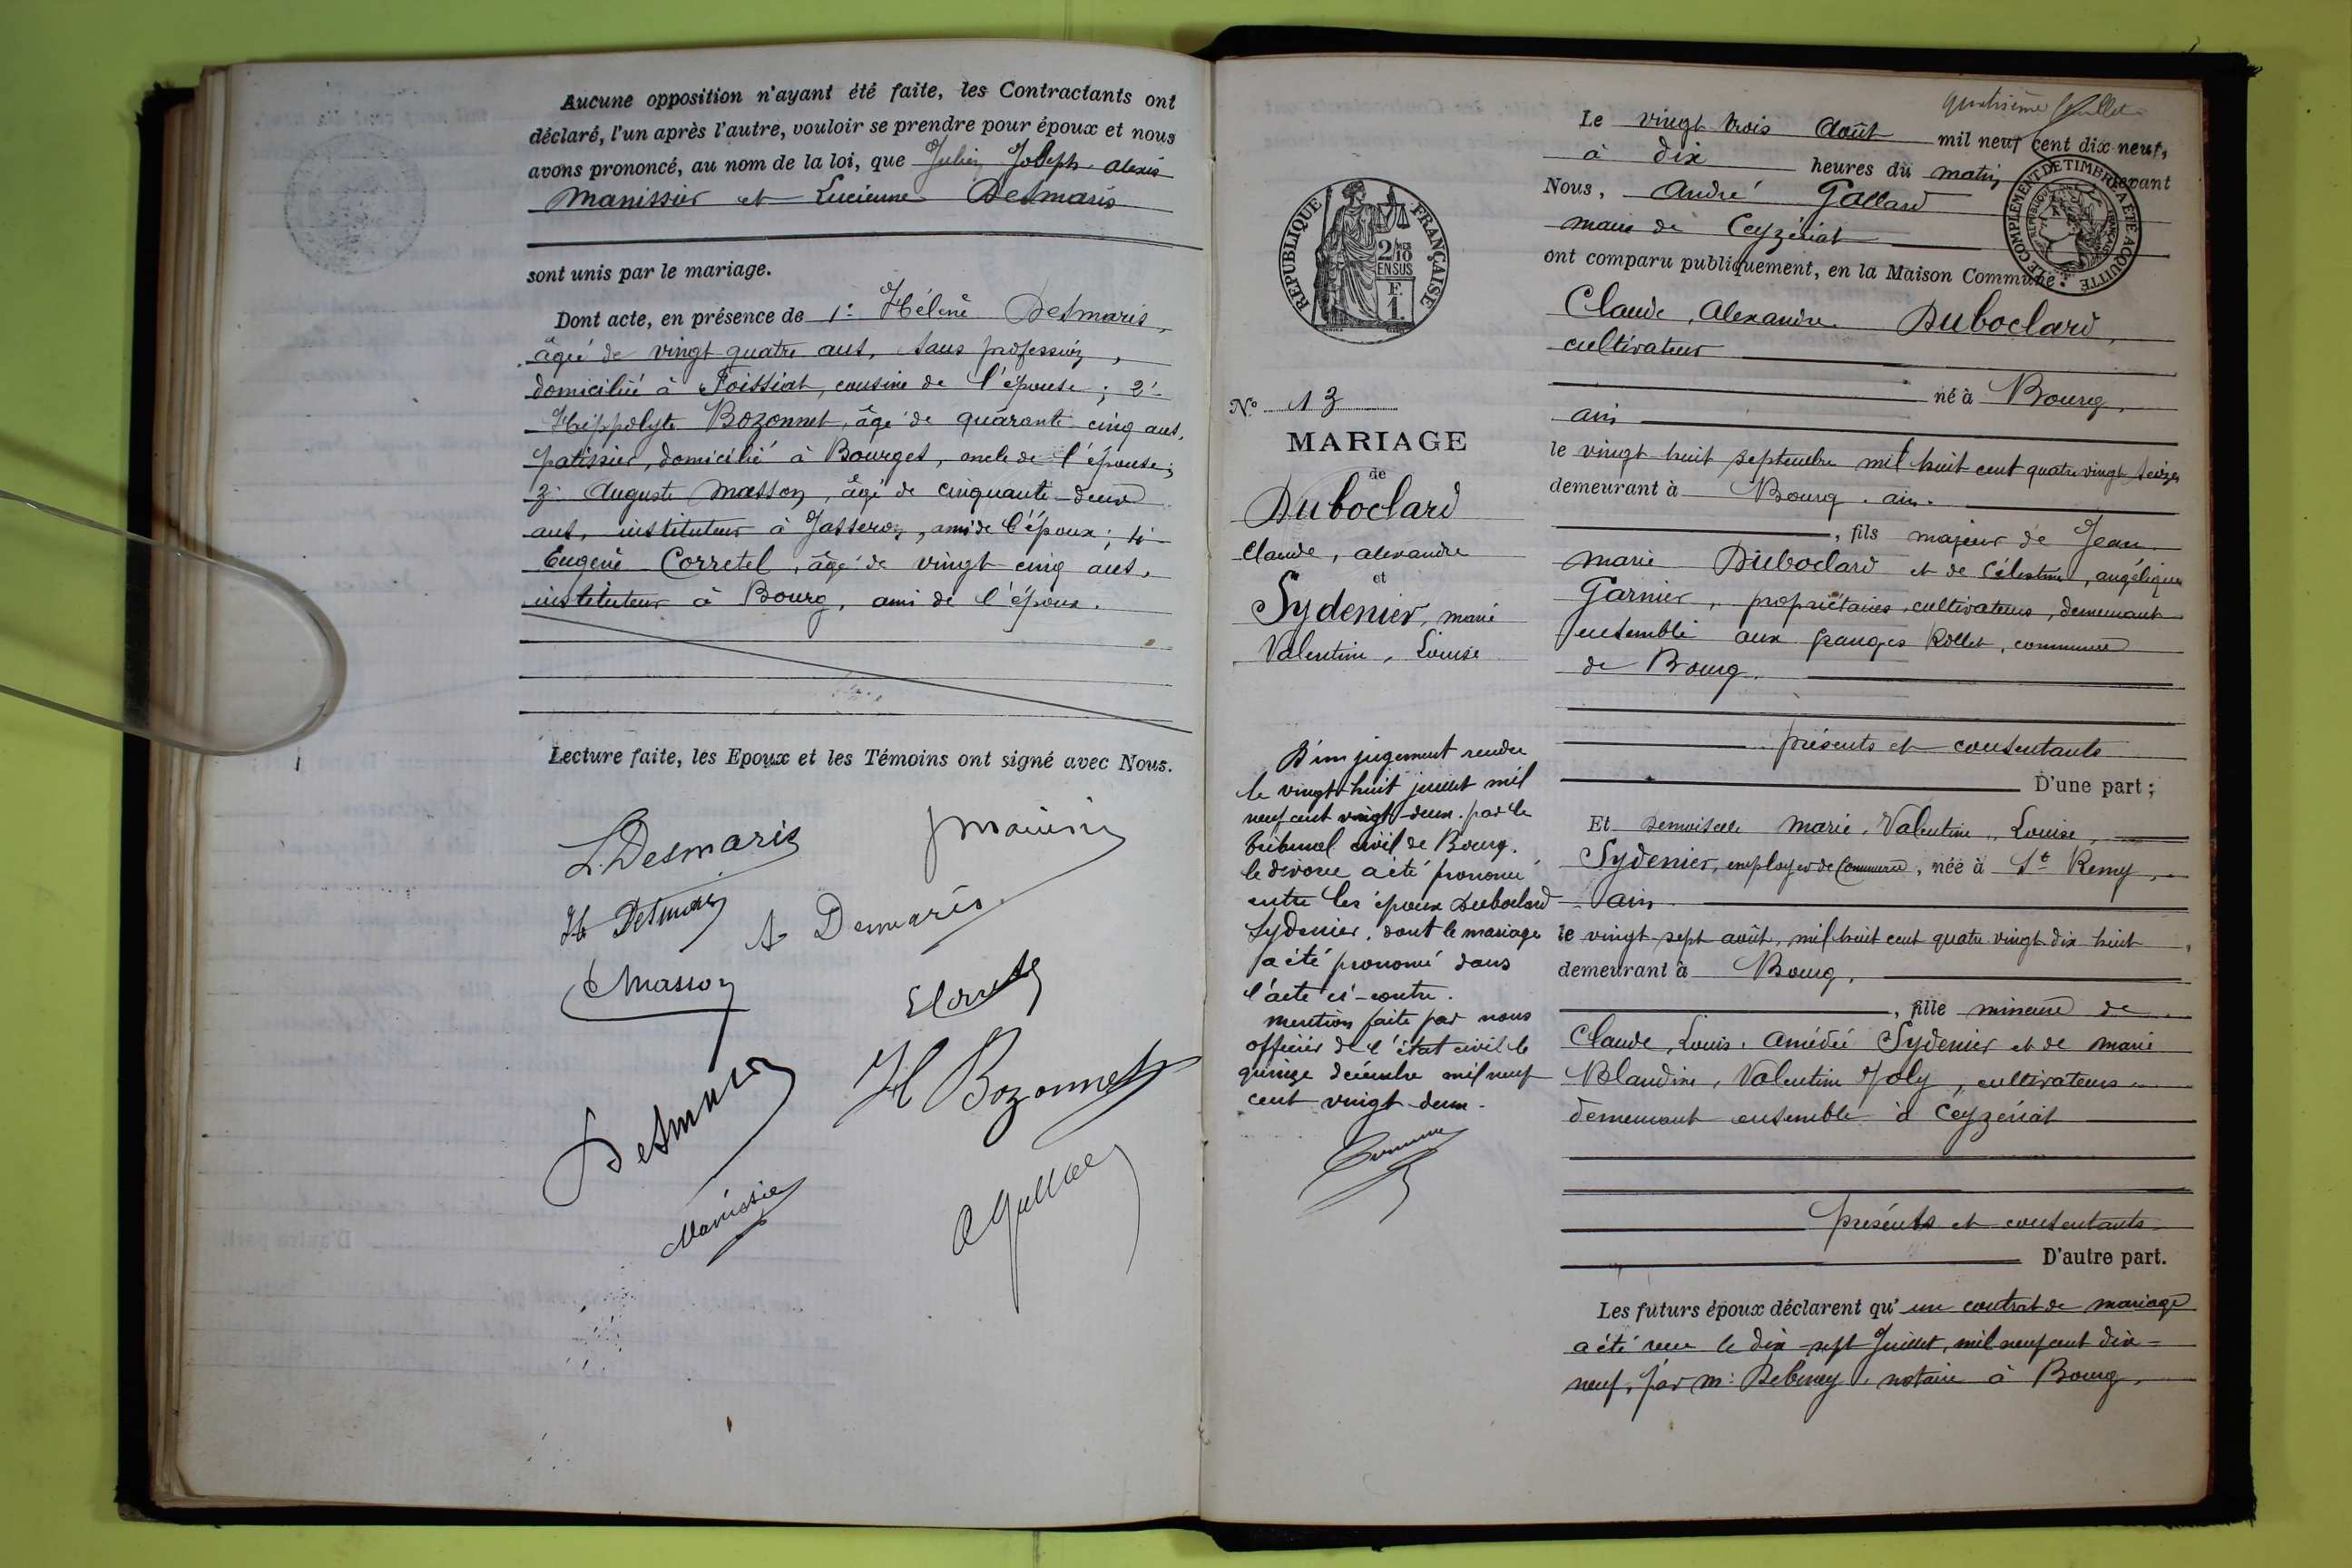 Aucune opposition n'ayant été faite, les Contractants ont
déclaré, l'un après l'autre, vouloir se prendre pour époux et nous
avons prononcé, au nom de la loi, que Julien Joseph Alexis
Manissier et Lucienne Desmaris
sont unis par le mariage.
Dont acte, en présence de 1° Hélène Desmaris,
âgée de vingt quatre ans, sans profession,
domiciliée à Foissiat, cousine de l'épouse ; 2°
Hippolyte Bozonnet, âgé de quarante cinq ans,
patissier, domicilié à Bourget, oncle de l'épouse ;
3° Auguste Masson, âgé de cinquante-deux
ans, instituteur à Jasseron, ami de l'époux ; 4°
Eugène Corretel, âgé de vingt cinq ans,
instituteur à Bourg, ami de l'époux.
Lecture faite, les Epoux et les Témoins ont signé avec Nous.
L. Desmaris
H Desmaris
A Demarés
Masson
H Bozonnet
Desmaris
Manissier
A Gallard
quatrième feuillet
RÉPUBLIQUE FRANÇAISE
2/10 EN SUS
F. 1.
LE COMPLÉMENT DE TIMBRE A ÉTÉ ACQUITTÉ
N° 13
MARIAGE
de
Duboclard
Claude, Alexandre
et
Sydenier, marie
Valentine, Louise
D'un jugement rendu
le vingt-huit juillet mil
neuf cent vingt-deux par le
tribunal civil de Bourg.
le divorce a été prononcé
entre les époux Duboclard
Sydenier, dont le mariage
a été prononcé dans
l'acte ci-contre.
mention faite par nous
officier de l'état civil le
quinze décembre mil neuf
cent vingt-deux.
Le vingt trois Août mil neuf cent dix-neuf,
à dix heures du matin devant
Nous, André Gallard
maire de Ceyzériat
ont comparu publiquement, en la Maison Commune :
Claude, Alexandre Duboclard,
cultivateur
né à Bourg,
ain
le vingt-huit septembre mil huit cent quatre vingt seize
demeurant à Bourg. ain.
, fils majeur de Jean
marie Duboclard et de Célestine, angélique
Garnier, propriétaires cultivateurs, demeurant
ensemble aux granges Rollet, commune
de Bourg.
présents et consentants
D'une part ;
Et demoiselle marie, Valentine, Louise,
Sydenier, employée de Commerce, née à St Remy,
ain
le vingt-sept août, mil huit cent quatre vingt dix huit,
demeurant à Bourg,
, fille mineure de
Claude, Louis, Amédée Sydenier et de marie
Blandine, Valentine Joly, cultivateurs
demeurant ensemble à Ceyzériat
présents et consentants
D'autre part.
Les futurs époux déclarent qu'un contrat de mariage
a été reçu le dix-sept Juillet, mil neuf cent dix-
neuf, par M° Debeney, notaire à Bourg,